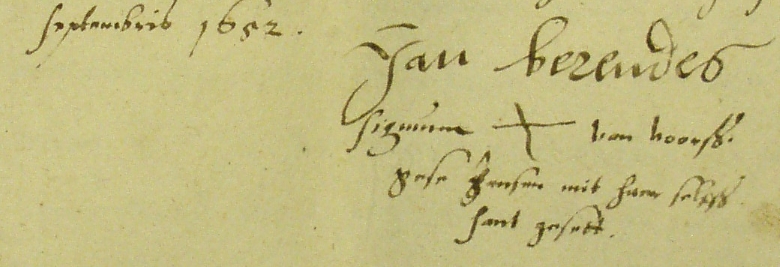 septembris 1652.
Jan berendes
signum + van voors.
gese Jensen mit haer selffs
hant gesett.